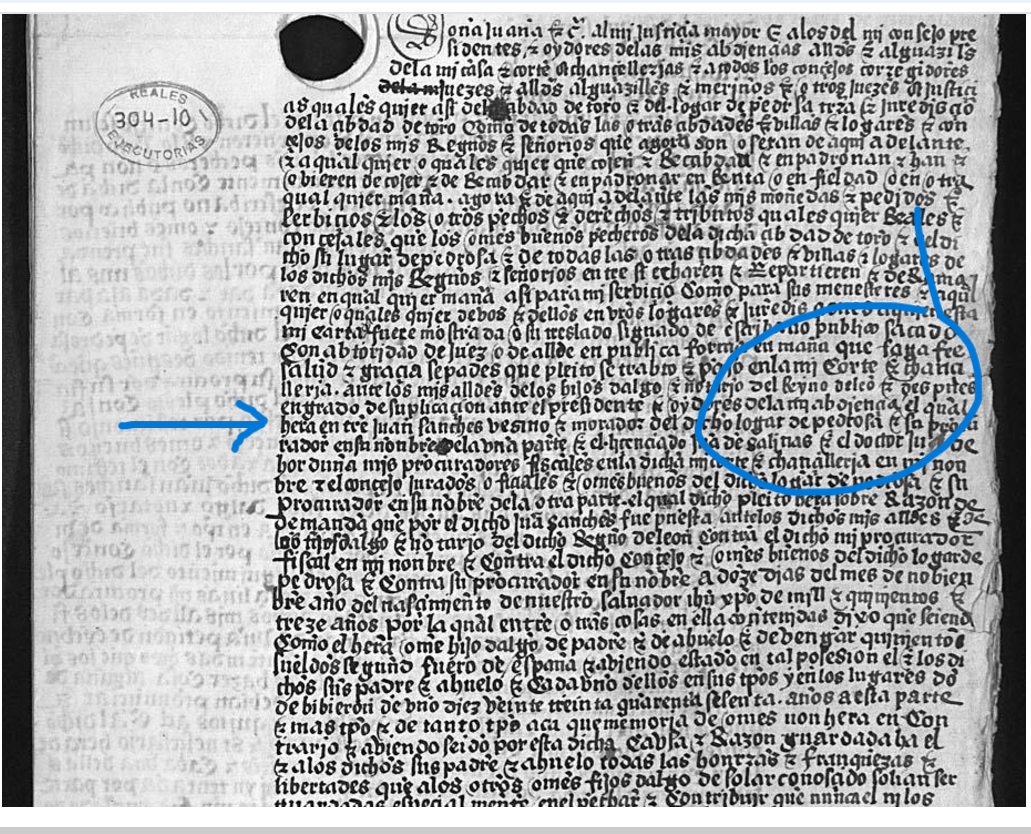 Doña Juana & c̃. al mi justicia mayor E alos del mi consejo pre
sidentes, & oydores delas mis abdiençias alldˢ & alguaziles
dela mi casa & corte & chançellerjas & a todos los conçejos corregidores
juezes & alldˢ alguazilles & merinos & otros juezes & justiçi
REALES
304-10
EJECUTORIAS
as quales quier asi dela çibdad de toro & del logar de pedrosa & juredisçiõ
dela çibdad de toro Como de todas las otras çibdades & villas & logares & con
çejos delos mis Regnos & señorios que agora son o seran de aqui a delante.
& a qual quier o quales quier que cojen & Recabdan & enpadronan & han &
o bieren de cojer & de Recabdar & en padronar en Renta o en fieldad o en otra
qual quier mañª. agora & de aqui adelante las mis moñedas & pedidos &
serbiçios & los otros pechos & derechos & tributos quales quier Reales &
conçejales que los omes buenos pecheros dela dicha çibdad de toro & del di
cho su lugar de pedrosa & de todas las otras çibdades & villas & logares de
los dichos mis Regnos & señorios entre si echaren & Repartieren & derrama
ren en qual quier mañª asi para mi serviçio Como para sus menesteres & aqual
quier o quales quier de vos & dellos en vros logares & juredisçiones aquien esta
mi carta fuere mostrada o su treslado signado de escribano publico sacado
Con abtoridad de juez o de allde en publica forma en mañª que faga fee
salud & graçia sepades que pleito se trabto & paso enla mi Corte & chançi
lleria. ante los mis alldˢ delos hijos dalgo & notario del Reyno de leõ & des pues
en grado de suplicaçion ante el presidente & oydores dela mi abdiençia el qual
hera entre juan sanches vesino & morador del dicho logar de pedrosa & su procu
rador en su nonbre dela vna parte & el liçençiado juã de salinas & el doctor juã de
hor duña mis procuradores fiscales enla dicha mi corte & chançillerja en mi non
bre & el conçejo jurados ofiçiales & omes buenos del dicho logar de pedrosa & su
procurador en su nõbre dela otra parte. el qual dicho pleito hera sobre Razon de
demanda que por el dicho juã sanches fue puesta. ante los dichos mis alldes de
los fijosdalgo & notario del dicho Regno de leon contra el dicho mi procurador
fiscal en mi nonbre & Contra el dicho Conçejo & omes buenos del dicho logar de
pedrosa & Contra su procurador en su nõbre A doze dias del mes de nobien
bre año del nasçimiento de nuestro salvador ihũ xp̃o de mill & quinientos &
treze años por la qual entre otras cosas en ella contenidas dixo que seiendo
Como el hera ome hijo dalgo de padre & de abuelo & de bengar quinientos
sueldos segund fuero de españa & abiendo estado en tal posesion el & los di
chos sus padre & abuelo & Cada vno dellos en sus tp̃os y en los lugares dõ
de bibieron de vno diez veinte treinta quarenta sesenta. años a esta parte
& mas tp̃o & de tanto tp̃o aca que memoria de omes non hera en Con
trario & abiendo seido por esta dicha Cabsa & Razon guardada ha el
& alos dichos sus padre & ahuelo todas las honrras & franquezas &
libertades que alos otros omes fijos dalgo de solar conosçido solian ser
guardadas espeçial mente. enel pechar & Contribuir que nũnca el nj los